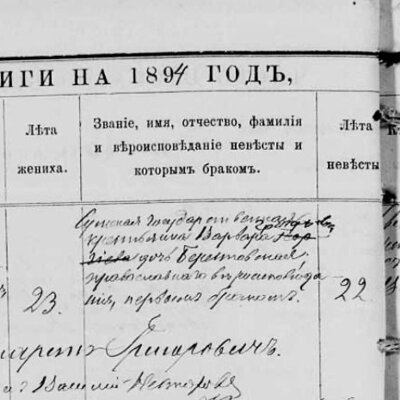 ИГИ НА 1894 ГОДЪ,
Лѣта жениха.
Званіе, имя, отчество, фамилія
и вѣроисповѣданіе невѣсты и
которымъ бракомъ.
Лѣта
невѣсты
23.
Сумская государственная
крестьянка Варвара
дочь Берестовская,
православнаго вѣроисповѣда
нія, первымъ бракомъ.
22
Григоровичъ.
Василій